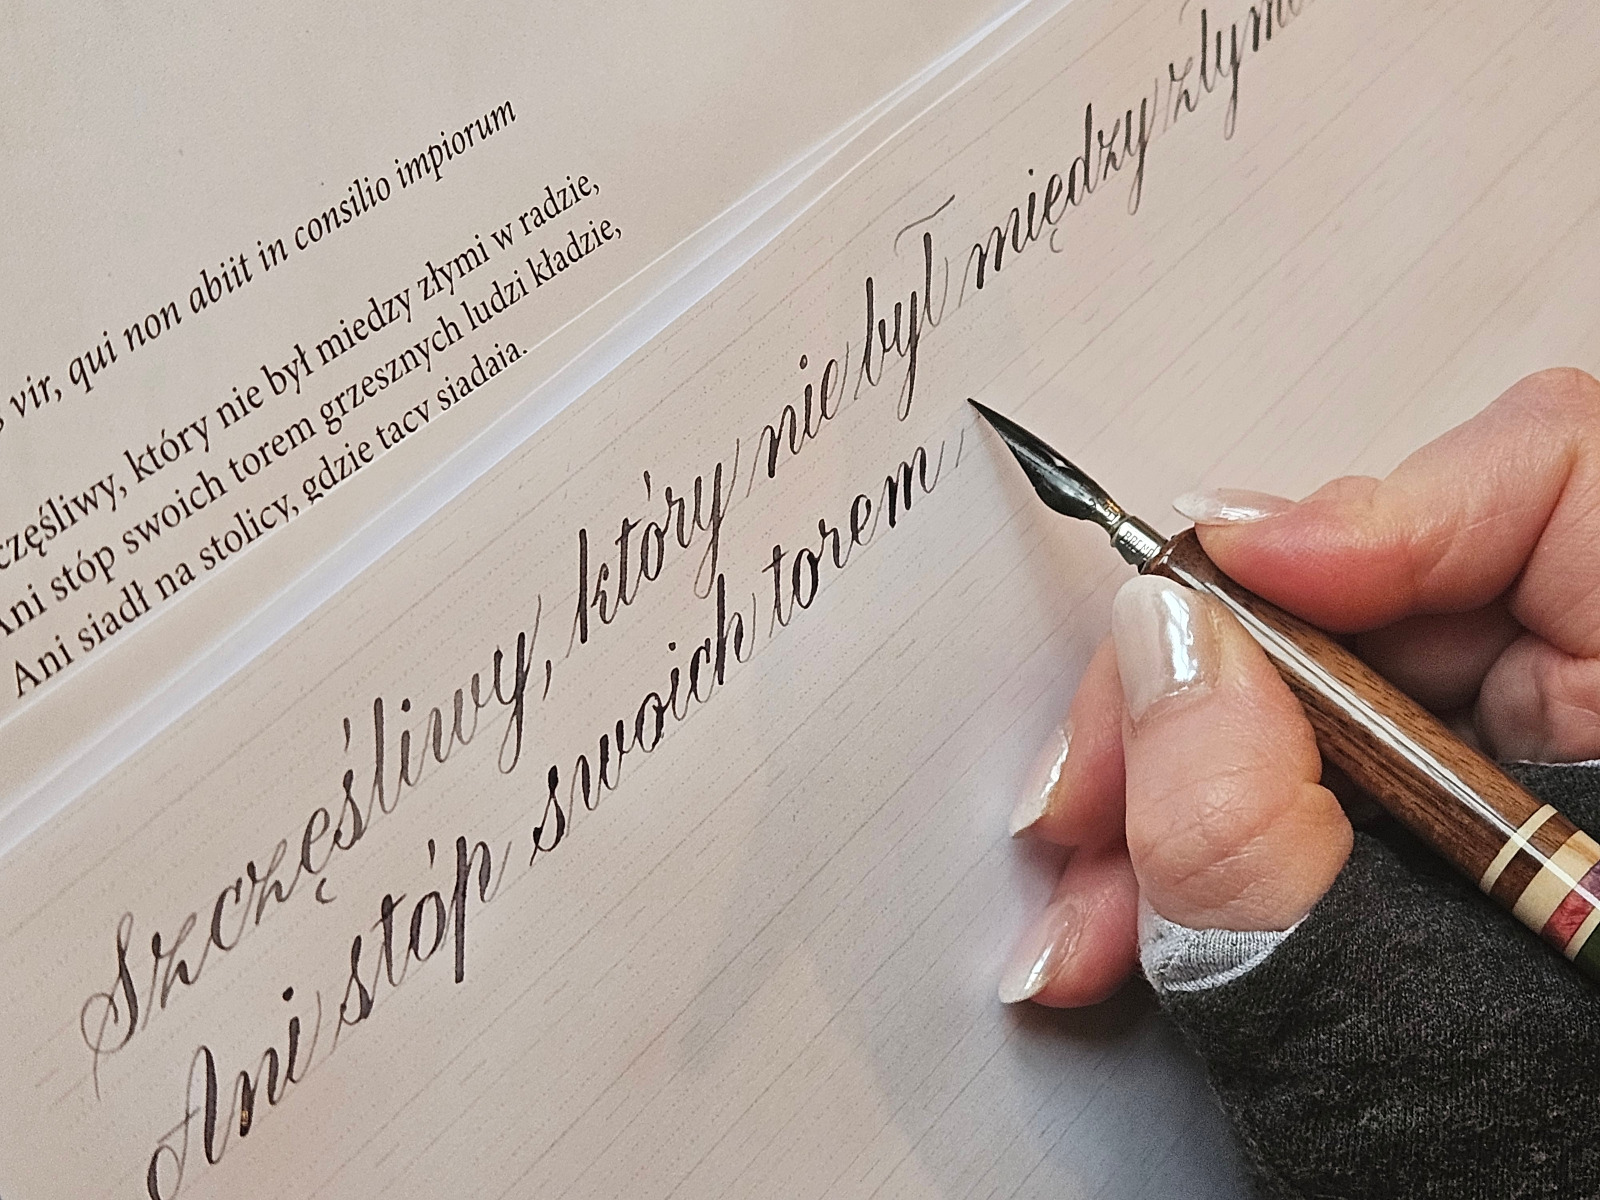 vir, qui non abiit in consilio impiorum
częśliwy, który nie był miedzy złymi w radzie,
Ani stóp swoich torem grzesznych ludzi kładzie,
Ani siadł na stolicy, gdzie tacy siadają.
Szczęśliwy, który nie był między złym
Ani stóp swoich torem